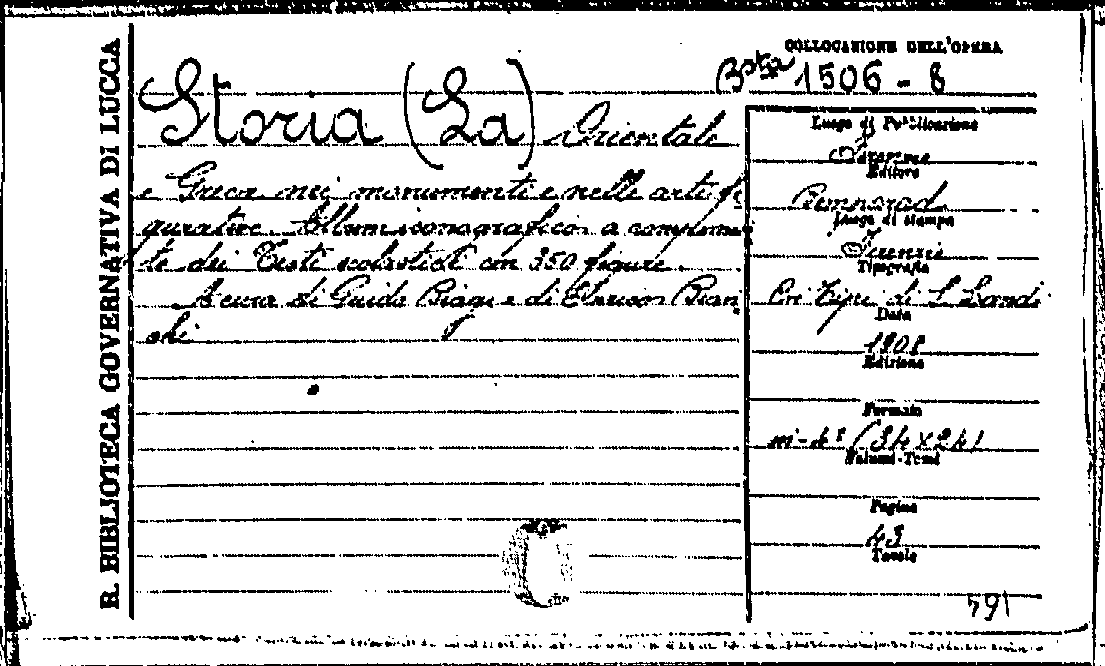 R. BIBLIOTECA GOVERNATIVA DI LUCCA
COLLOCAZIONE DELL'OPERA
Bsta 1506 - 8
Storia (La) Orientale
e Greca nei monumenti e nelle arti fi
gurative. Album iconografico a compleme
to dei Testi scolastici con 350 figure.
A cura di Guido Biagi e di Bian
chi
Luogo di Pubblicazione
Firenze
Editore
Bemporad
Luogo di stampa
Firenze
Tipografia
Coi Tipi di L Landi
Data
1908
Edizione
Formato
in-4° (34x24)
Volumi-Tomi
Pagine
43
Tavole
791